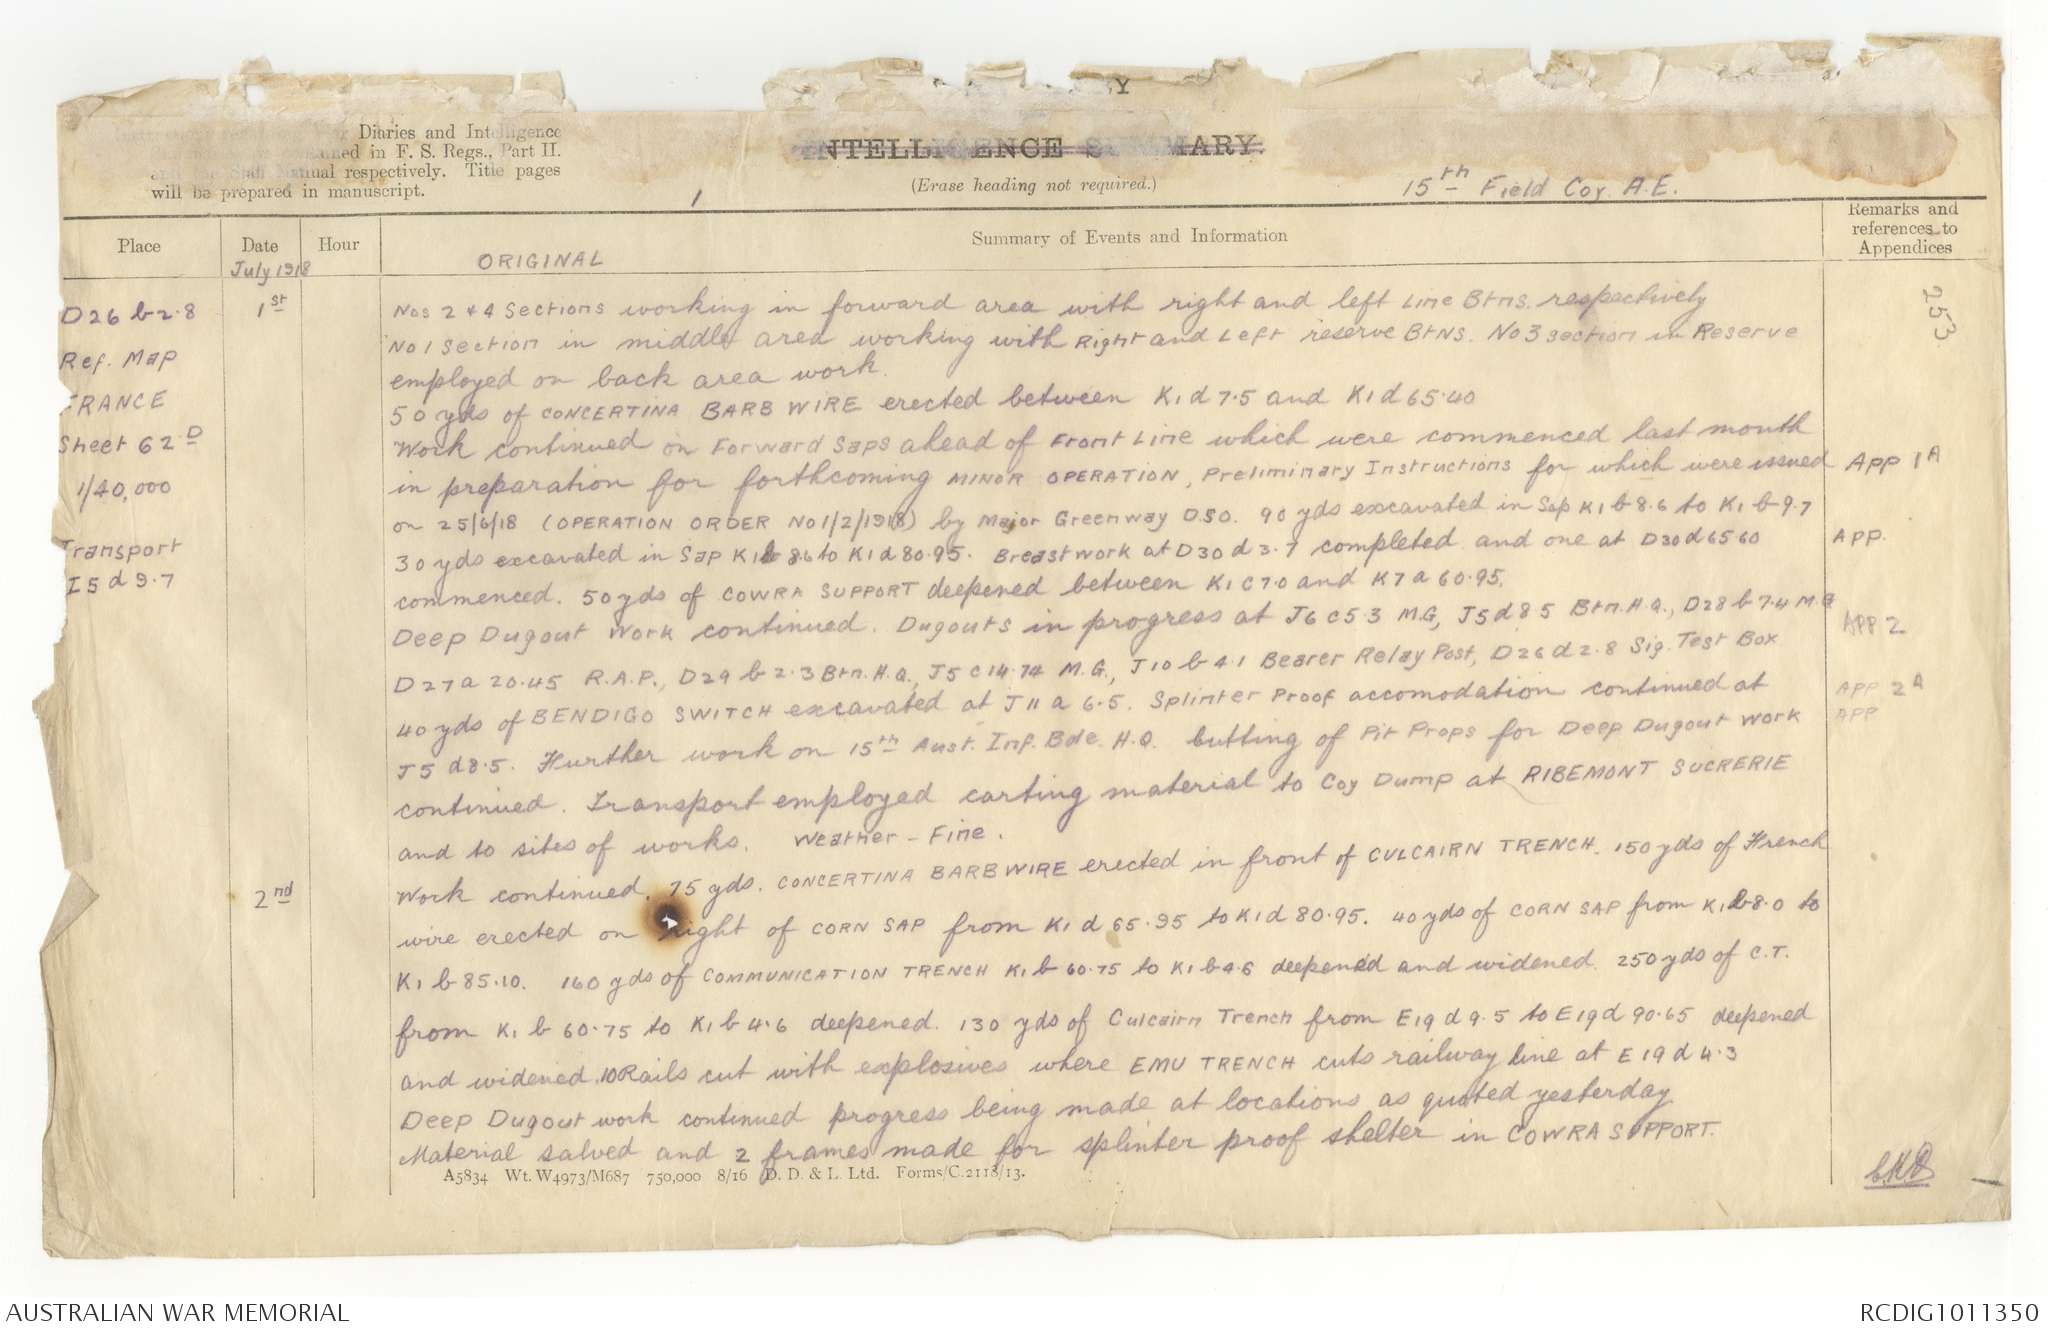 Y
Diaries and Intelligence
in F. S. Regs., Part II.
and the Staff Manual respectively. Title pages
will be prepared in manuscript.
INTELLIGENCE SUMMARY.
(Erase heading not required.)
1
15th Field Coy. A.E.
Place
Date
Hour
Summary of Events and Information
Remarks and
references to
Appendices
July 1918
ORIGINAL
253
D26 b 2.8
Ref. Map
FRANCE
Sheet 62 D
1/40,000
Transport
I5 d 9.7
1st
Nos 2 & 4 Sections working in forward area with right and left Line Btns. respectively
No 1 Section in middle area working with Right and Left reserve Btns. No 3 section in Reserve
employed on back area work.
50 yds of CONCERTINA BARB WIRE erected between K1 d 7.5 and K1 d 65.40
Work continued on Forward Saps ahead of Front Line which were commenced last month
in preparation for forthcoming MINOR OPERATION, Preliminary Instructions for which were issued
App 1A
on 25/6/18 (OPERATION ORDER No 1/2/1918) by Major Greenway DSO. 90 yds excavated in Sap K1 b 8.6 to K1 b 9.7
30 yds excavated in Sap K1 b 8.6 to K1 d 80.95. Breastwork at D30 d 3.7 completed and one at D30 d 65 60
APP.
commenced. 50 yds of COWRA SUPPORT deepened between K1 C 7.0 and K7 a 60.95.
Deep Dugout Work continued. Dugouts in progress at J6 c 5 3 M.G, J5 d 8 5 Btn. H.Q., D28 b 7.4 M.G
APP 2
D27 a 20.45 R.A.P., D29 b 2.3 Btn. H.Q., J5 c 14.74 M.G., J10 b 4.1 Bearer Relay Post, D26 d 2.8 Sig. Test Box
40 yds of BENDIGO SWITCH excavated at J 11 a 6.5. Splinter Proof accomodation continued at
APP 2A
APP
J5 d 8.5. Further work on 15th Aust. Inf. Bde. H.Q. Cutting of Pit Props for Deep Dugout Work
continued. Transport employed carting material to Coy Dump at RIBEMONT SUCRERIE
and to sites of works. Weather - Fine.
2nd
Work continued. 75 yds. CONCERTINA BARB WIRE erected in front of CULCAIRN TRENCH. 150 yds of French
wire erected on right of CORN SAP from K1 d 65.95 to K1 d 80.95. 40 yds of CORN SAP from K1 b 8.0 to
K1 b 85.10. 160 yds of COMMUNICATION TRENCH K1 b 60.75 to K1 b 4.6 deepened and widened. 250 yds of C.T.
from K1 b 60.75 to K1 b 4.6 deepened. 130 yds of Culcairn Trench from E19 d 9.5 to E19 d 90.65 deepened
and widened. 10 Rails cut with explosives where EMU TRENCH cuts railway line at E 19 d 4.3
Deep Dugout work continued progress being made at locations as quoted yesterday.
Material salved and 2 frames made for splinter proof shelter in COWRA SUPPORT.
A5834 Wt. W4973/M687 750,000 8/16 D. D. & L. Ltd. Forms/C.2118/13.
AUSTRALIAN WAR MEMORIAL
RCDIG1011350